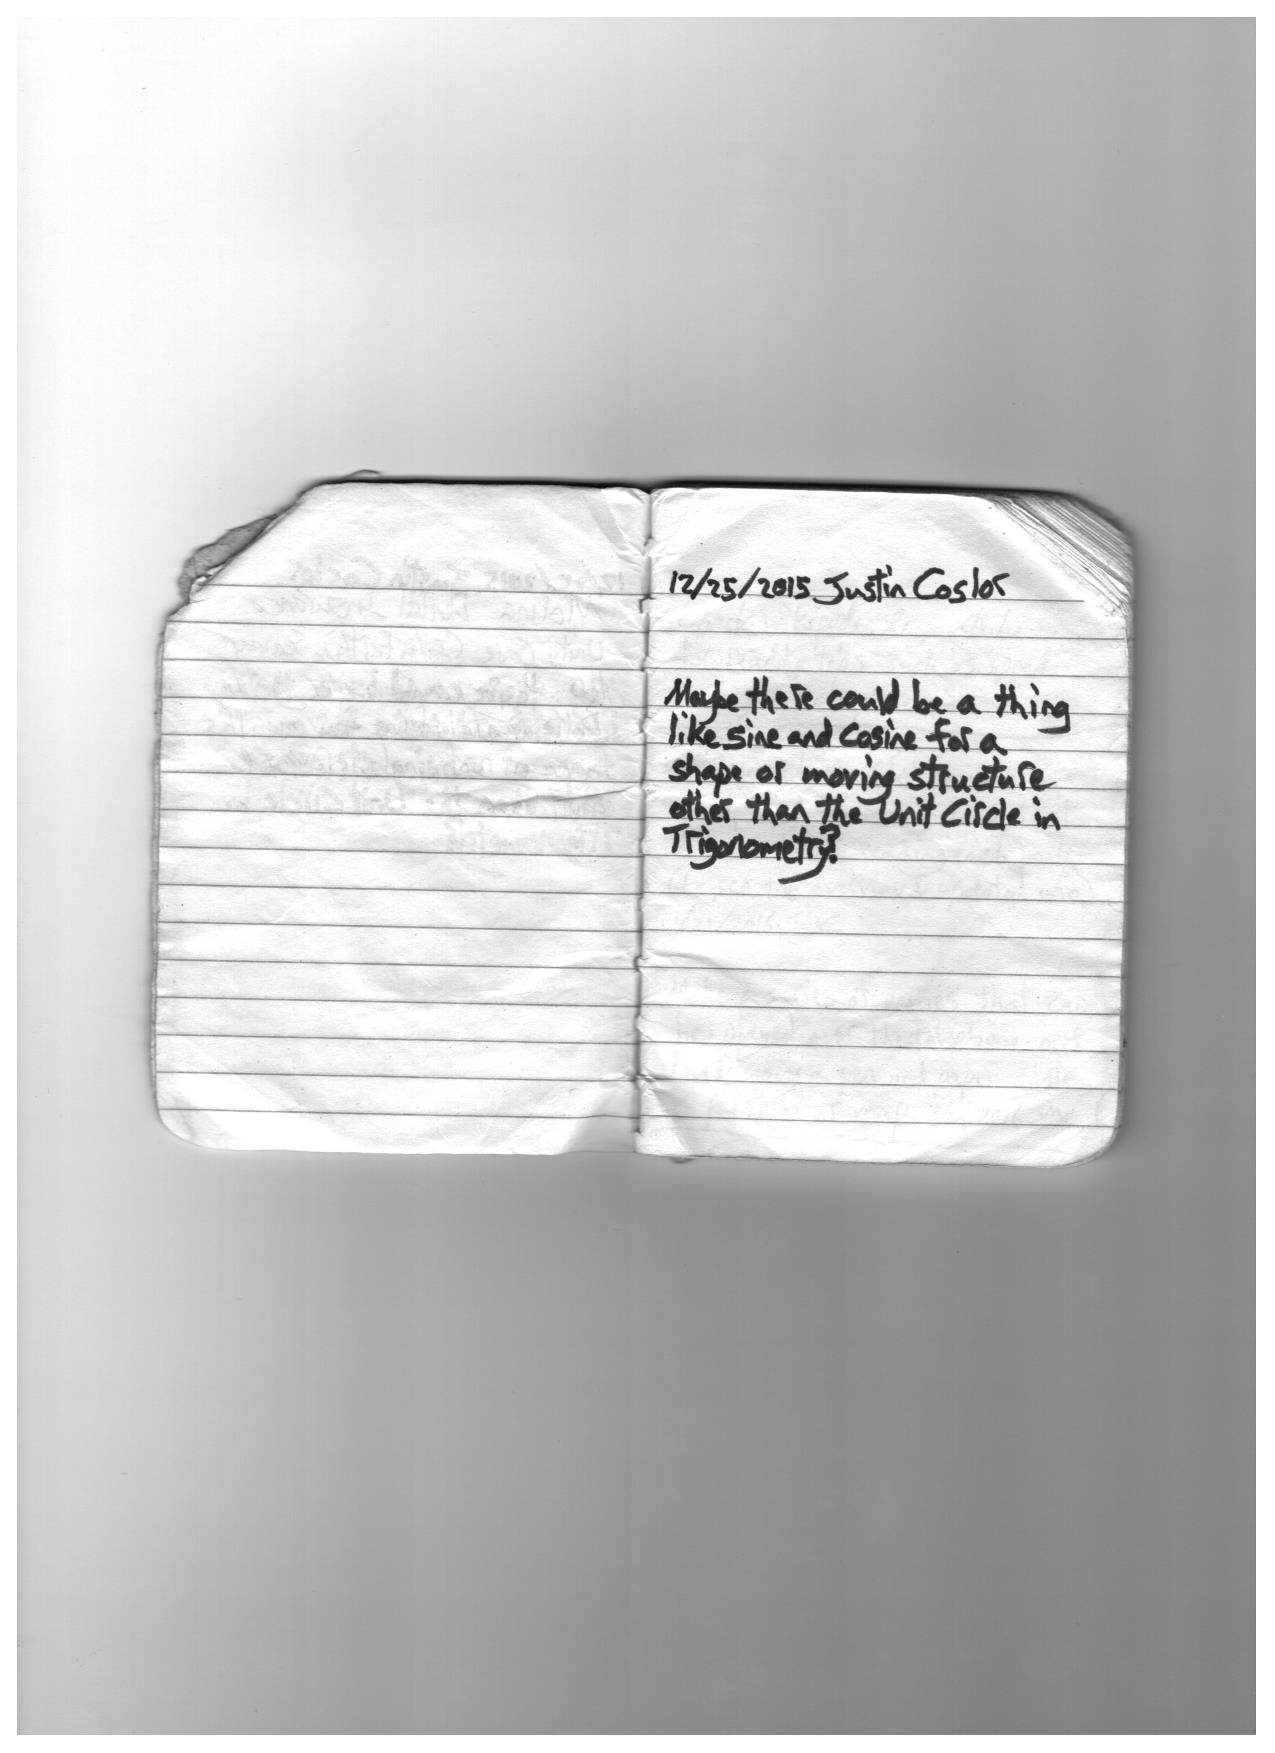 12/25/2015 Justin Coslor
Maybe there could be a thing
like sine and cosine for a
shape or moving structure
other than the Unit Circle in
Trigonometry?